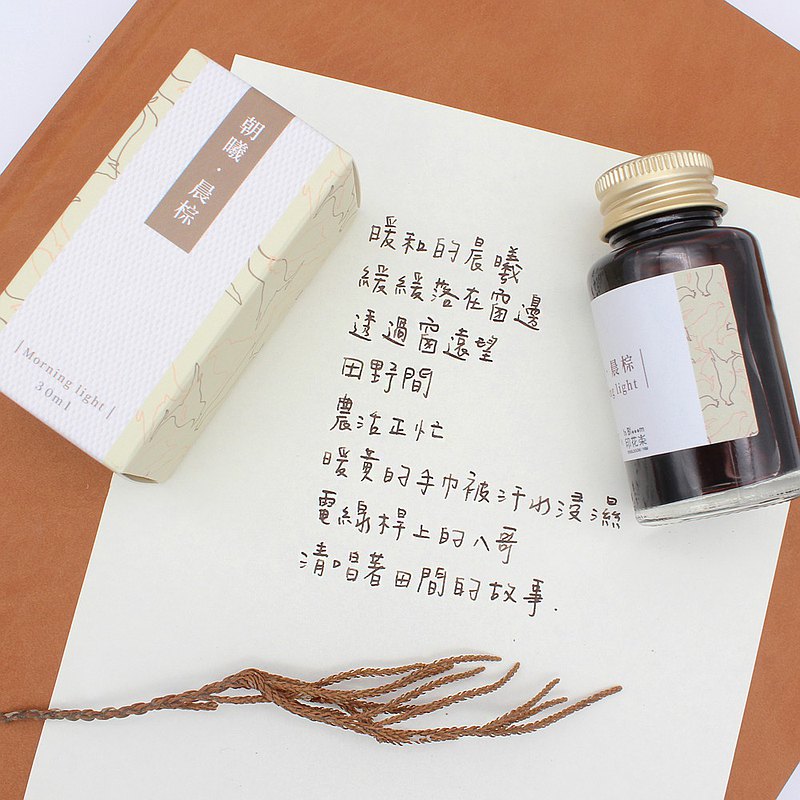 朝曦·晨棕
| Morning light |
30ml
暖和的晨曦
緩緩落在窗邊
透過窗遠望
田野間
農活正忙
暖黃的手巾被汗水浸濕
電線桿上的八哥
清唱著田間的故事.
晨棕
light
in Bloom
印花樂